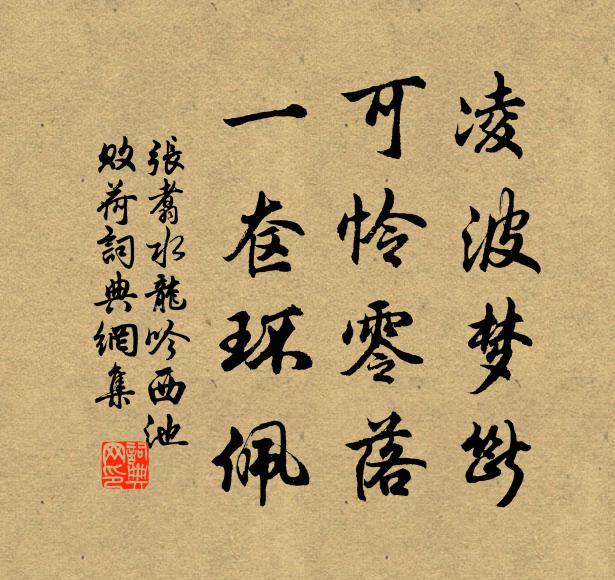 凌波梦断
可怜零落
一奁环佩
張翥水龍吟西池
敗荷詞典網集
詞典网印